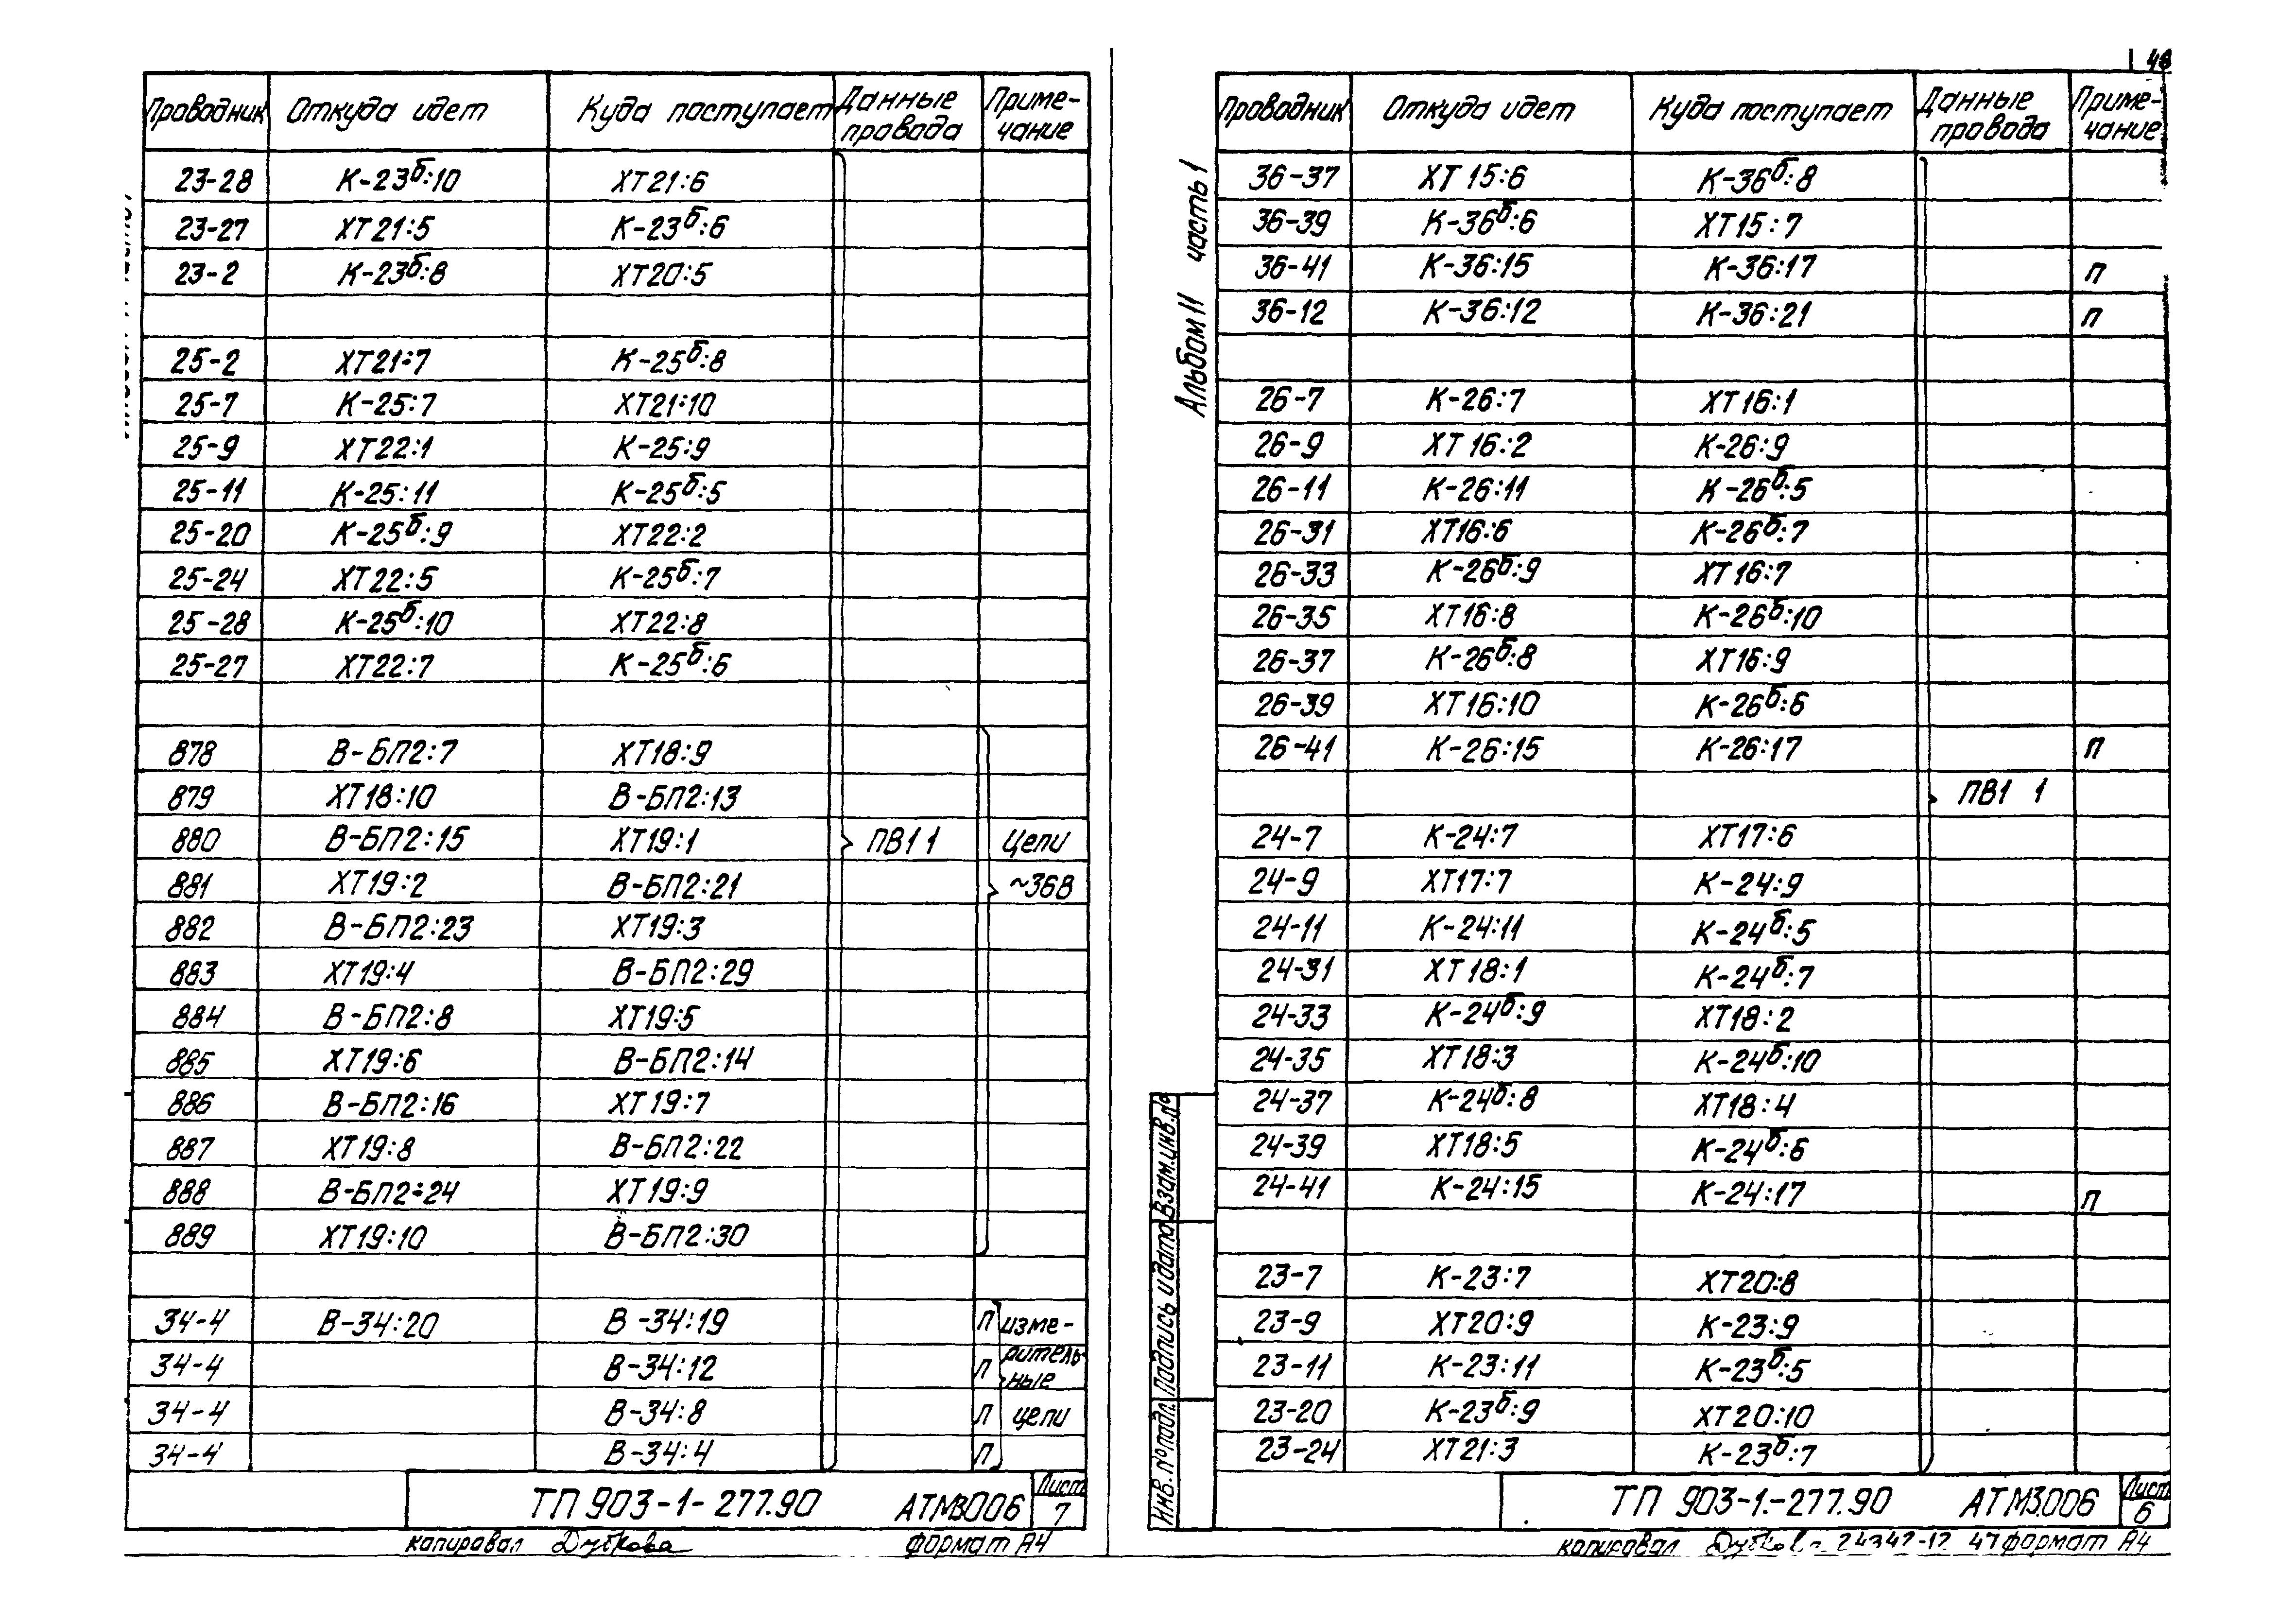 Проводник Откуда идет Куда поступает Данные провода Приме-чание
23-28 К-23б:10 ХТ21:6
23-27 ХТ21:5 К-23б:6
23-2 К-23б:8 ХТ20:5
25-2 ХТ21:7 К-25б:8
25-7 К-25:7 ХТ21:10
25-9 ХТ22:1 К-25:9
25-11 К-25:11 К-25б:5
25-20 К-25б:9 ХТ22:2
25-24 ХТ22:5 К-25б:7
25-28 К-25б:10 ХТ22:8
25-27 ХТ22:7 К-25б:6
878 В-БП2:7 ХТ18:9
879 ХТ18:10 В-БП2:13
880 В-БП2:15 ХТ19:1 ПВ1 1 Цепи
881 ХТ19:2 В-БП2:21 ~36В
882 В-БП2:23 ХТ19:3
883 ХТ19:4 В-БП2:29
884 В-БП2:8 ХТ19:5
885 ХТ19:6 В-БП2:14
886 В-БП2:16 ХТ19:7
887 ХТ19:8 В-БП2:22
888 В-БП2:24 ХТ19:9
889 ХТ19:10 В-БП2:30
34-4 В-34:20 В-34:19 П изме-
34-4 В-34:12 П ритель-ные
34-4 В-34:8 П цепи
34-4 В-34:4 П
ТП 903-1-277.90 АТМ3.006 Лист 7
копировал Дубкова формат А4
48
Альбом II часть 1
Проводник Откуда идет Куда поступает Данные провода Приме-чание
36-37 ХТ15:6 К-36б:8
36-39 К-36б:6 ХТ15:7
36-41 К-36:15 К-36:17 П
36-12 К-36:12 К-36:21 П
26-7 К-26:7 ХТ16:1
26-9 ХТ16:2 К-26:9
26-11 К-26:11 К-26б:5
26-31 ХТ16:6 К-26б:7
26-33 К-26б:9 ХТ16:7
26-35 ХТ16:8 К-26б:10
26-37 К-26б:8 ХТ16:9
26-39 ХТ16:10 К-26б:6
26-41 К-26:15 К-26:17 П
ПВ1 1
24-7 К-24:7 ХТ17:6
24-9 ХТ17:7 К-24:9
24-11 К-24:11 К-24б:5
24-31 ХТ18:1 К-24б:7
24-33 К-24б:9 ХТ18:2
24-35 ХТ18:3 К-24б:10
24-37 К-24б:8 ХТ18:4
24-39 ХТ18:5 К-24б:6
24-41 К-24:15 К-24:17 П
23-7 К-23:7 ХТ20:8
23-9 ХТ20:9 К-23:9
23-11 К-23:11 К-23б:5
23-20 К-23б:9 ХТ20:10
23-24 ХТ21:3 К-23б:7
Инв.№подл. Подпись и дата Взам.инв.№
ТП 903-1.-277.90 АТМ3.006 Лист 6
копировал 24347-12 47 формат А4